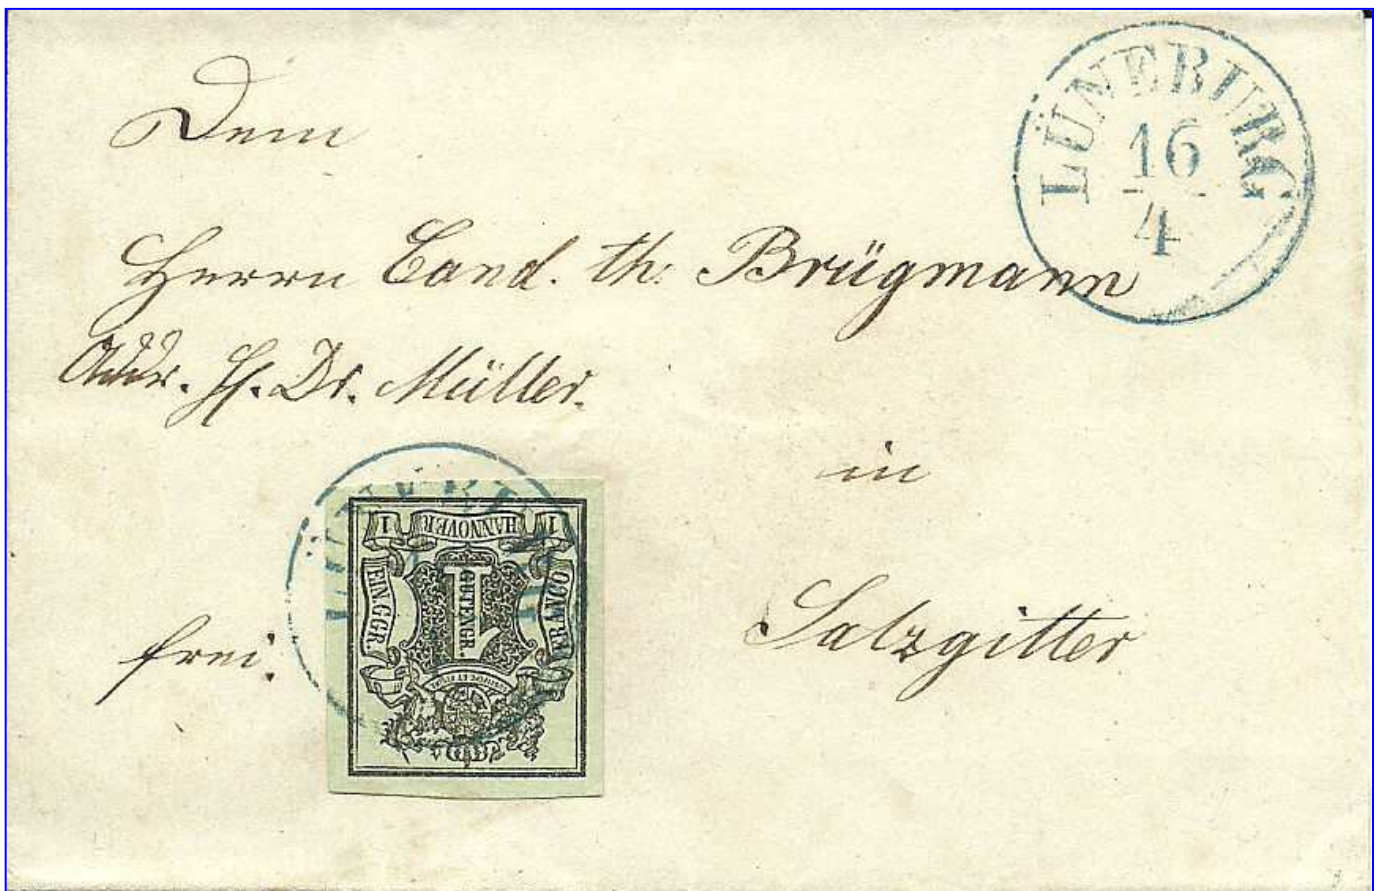 Dem
LÜNEBURG
16
4
Herrn Cand. th: Brügmann
Addr. H. Dr. Müller.
in
Salzgitter
frei.
LÜNEBURG
1 HANNOVER 1
EIN GGR.
FRANCO
1
GUTENGR.